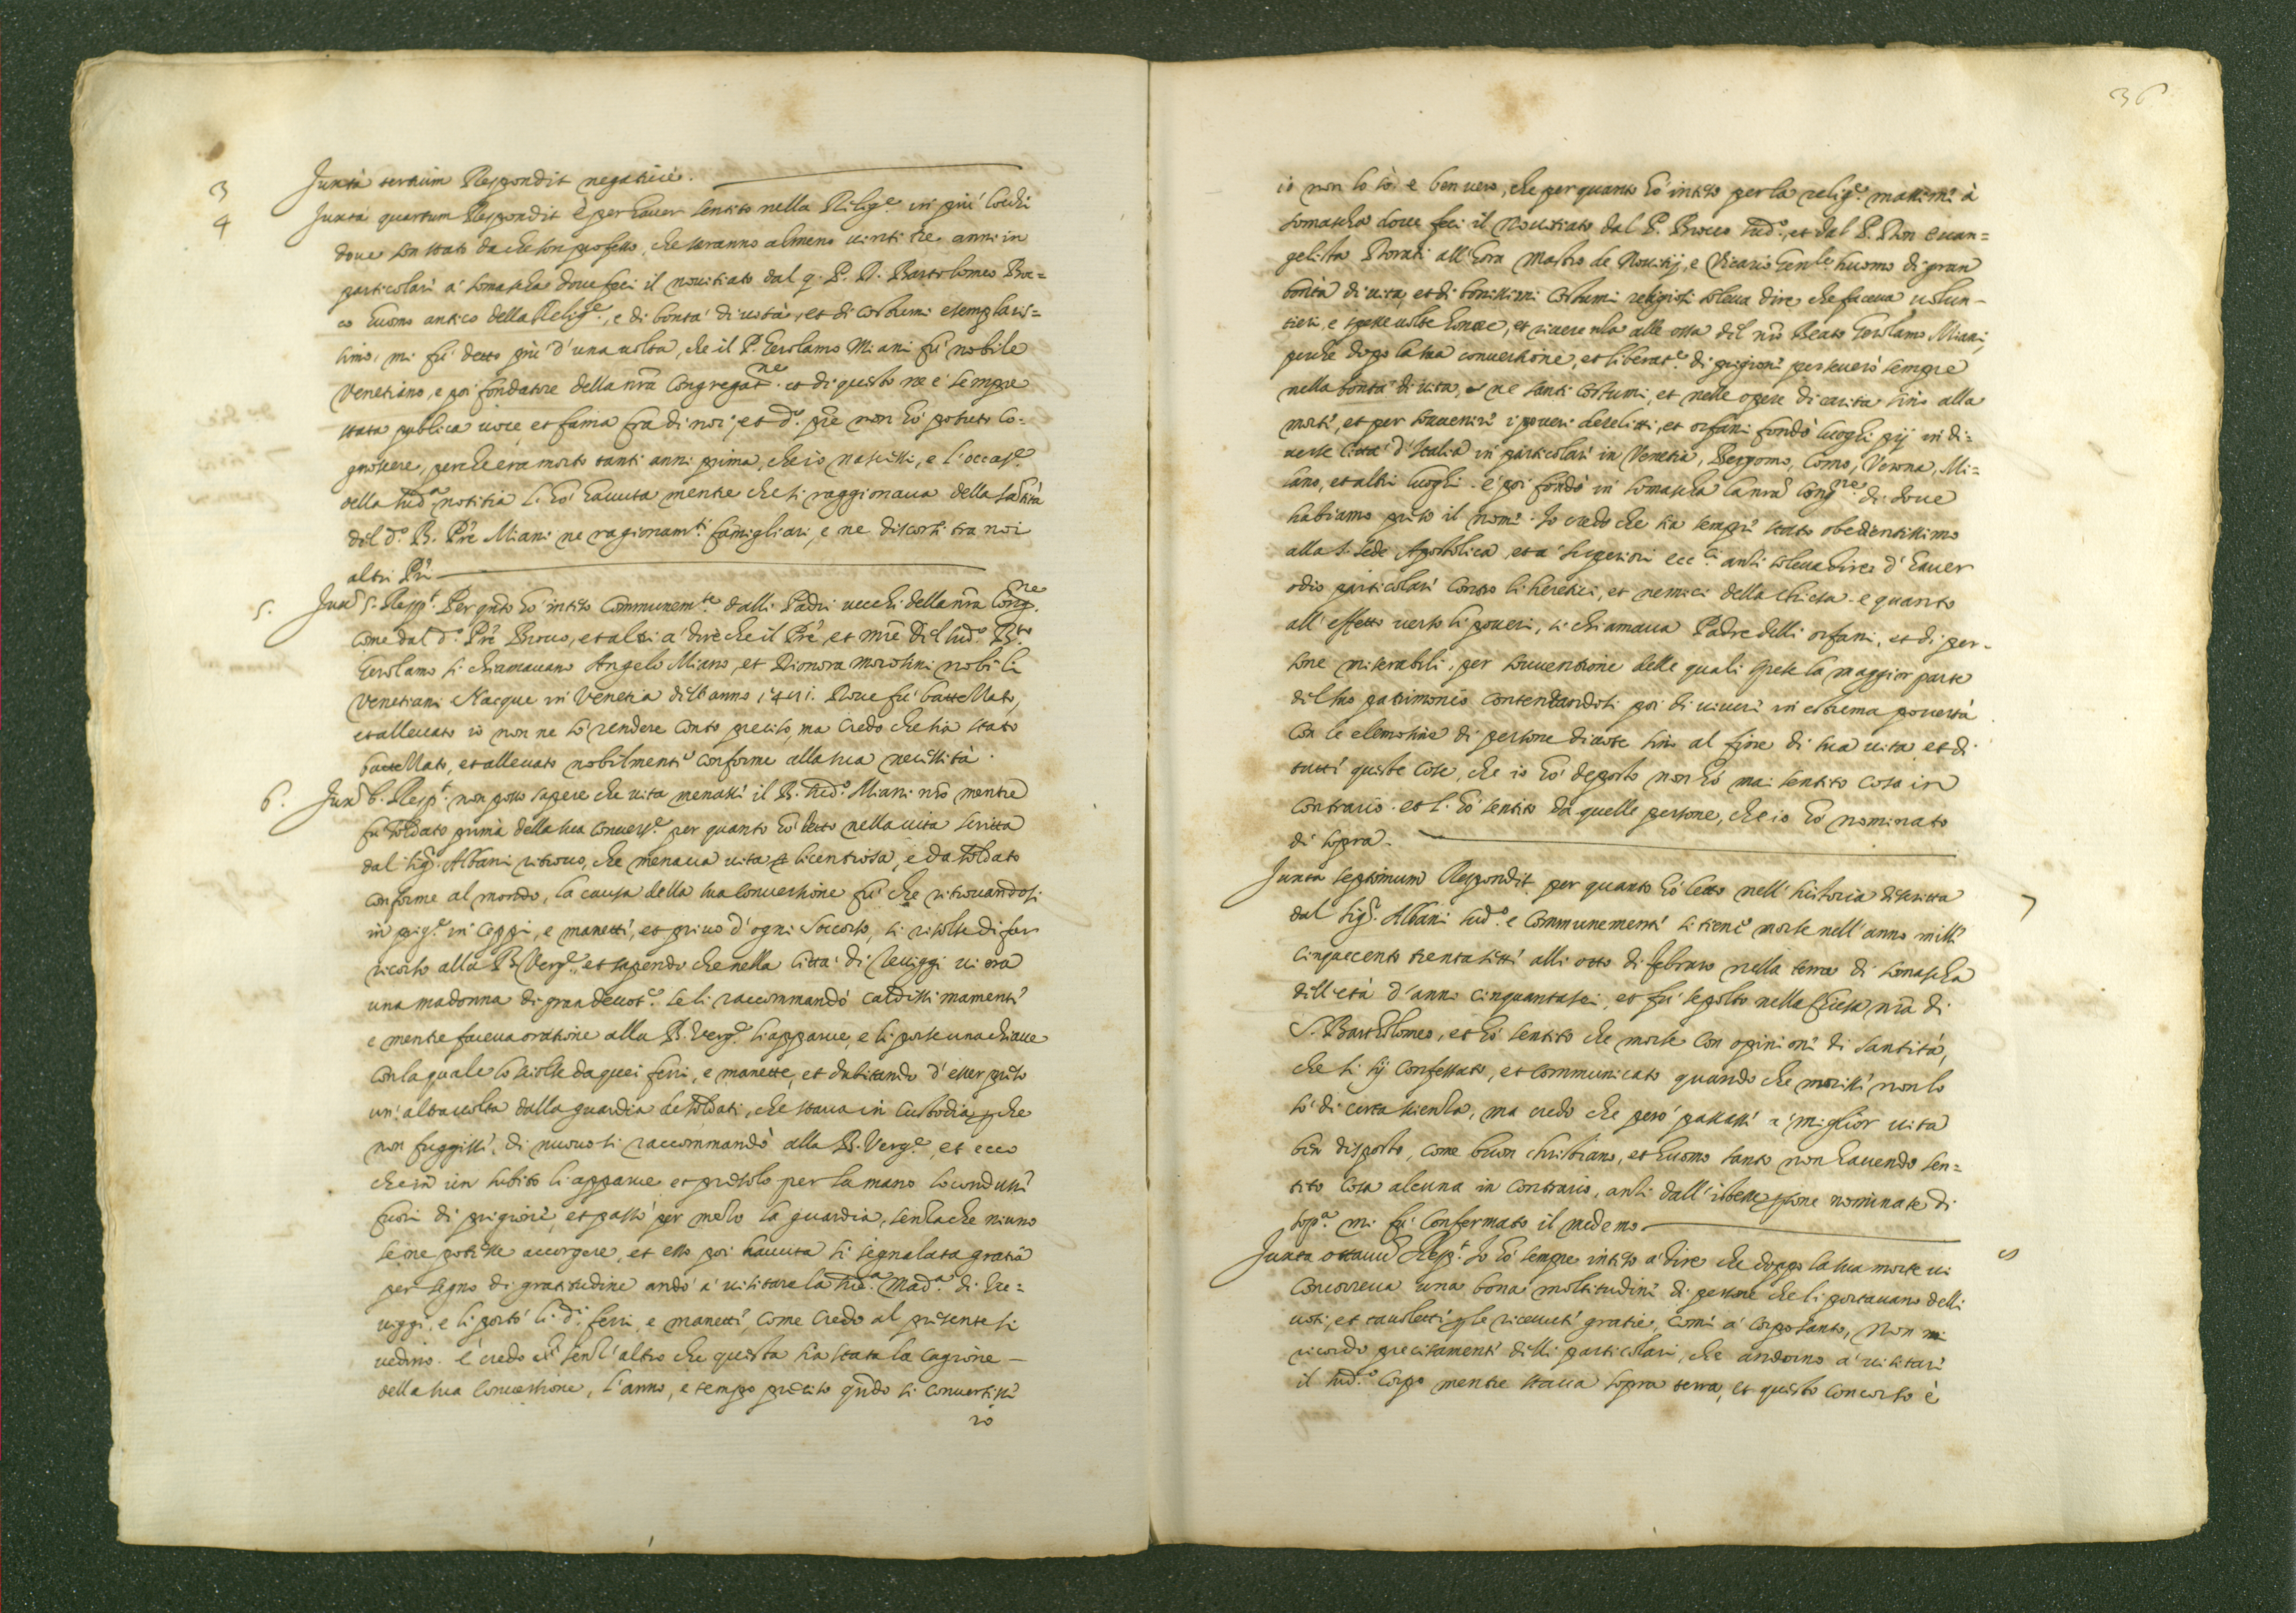 3 Juxta tertium Respondit negative.
4 Juxta quartum Respondit è per haver sentito nella Relig.e in più lochi
dove son stato da che son professo, che saranno almeno vinti tre anni in
particolari à Somascha dove feci il novitiato dal q. P. D. Bartolomeo Bro=
co huomo antico della Relig.e, e di bontà di vita, et di costumi esemplaris=
simo, mi fù detto più d'una volta, che il P. Gerolamo Miani fù nobile
Venetiano, e poi fondatore della nrã Congregat.ne et di questo ne è sempre
stata publica voce et fama fra di noi, et d.o prẽ non hò potuto co=
gnoscere, perche era morto tanti anni prima, che io nascessi, e l'occas.e
della sud.a notitia l'hò havuta mentre che si raggionava della santità
del d.o B. Prẽ Miani ne ragionam.ti famigliari, e ne discorsi tra noi
altri Prĩ
5. Juxã 5. Resp.t Per qnto hò inteso communem.te dalli Padri vecchi della nrã Cong.ne
come dal d.o Prẽ Broco, et altri à dire che il Prẽ, et mrẽ del sud.o B.to
Gerolamo si chiamavano Angelo Miano, et Dionora morosini nobili
Venetiani Nacque in Venetia dell'anno 1481. Dove fù battezzato,
et allevato io non ne sò rendere conto preciso, ma credo che sia stato
battezzato, et allevato nobilmente conforme alla sua necessità.
6. Juxã 6. Resp.t non posso sapere che vita menassi il B. sud.o Miani nrõ mentre
fu soldato prima della sua convers.e per quanto hò letto nella vita scritta
dal Sig.r Albani ritrovo, che menava vita licentiosa, e da soldato
conforme al mondo, la causa della sua conversione fù che ritrovandosi
in prig.e in ceppi, e manetti, et privo d'ogni soccorso, si risolse di far
ricorso alla B. Verg.e, et sapendo che nella città di Treviggi vi era
una madonna di gran devot.e se li raccommandò caldissimamente
e mentre faceva oratione alla B. Verg.e li apparve, e li porse una chiave
con la quale lo sciolse da quei ferri, e manette, et dubitando d'esser preso
un'altra volta dalla guardia de soldati, che stava in custodia perche
non fuggissi, di nuovo si raccommandò alla B. Verg.e, et ecco
che in un subito li apparve et presolo per la mano lo condussi
fuori di prigione, et passò per mezo la guardia, senza che niuno
se ne potesse accorgere, et esso poi havuta si segnalata gratia
per segno di gratitudine andò à visitare la sud.a Mad.a di Tre=
viggi, e li portò li d.i ferri, e manetti, come credo al presente si
vedino. E credo senz'altro che questa sia stata la cagione
della sua conversione, l'anno, e tempo preciso qñdo si convertissi
io
36
io non lo sò: è ben vero, che per quanto hò inteso per la relig.e massime à
somascha dove feci il Novitiato dal P. Broco sud.o, et dal P. Don Evan=
gelista Dorati all'hora Mastro de Novitij, e Vicario Gen.le huomo di gran
bontà di vita, et di bonissimi costumi religiosi soleva dire che faceva volun=
tieri, e spesse volte honore, et riverenza alle ossa del nrõ Beato Gerolamo Miani,
perche dopo la sua conversione, et liberat.e di prigioni perseverò sempre
nella bontà di vita, e ne santi costumi, et nelle opere di carità sino alla
morte, et per sovvenire i poveri derelitti, et orfani fondò luoghi pij in di=
verse Città d'Italia in particolari in Venetia, Bergomo, Como, Verona, Mi=
lano, et altri luoghi. e poi fondò in somascha la nrã Cong.ne di dove
habiamo preso il nome. Io credo che sia sempre stato obedientissimo
alla S. Sede Apostolica, et à superiori ecc.ci anzi soleva dire d'haver
odio particolari contro li heretici, et nemici della chiesa. e quanto
all'effetto verso li poveri, si chiamava Padre delli orfani, et di per=
sone miserabili, per sovventione delle quali spese la maggior parte
del suo patrimonio contentandosi poi di viveri in estrema povertà
con le elemosine di persone divote sino al fine di sua vita, et di
tutte queste cose, che io hò deposto non hò mai sentito cosa in
contrario. et l'hò sentito da quelle persone, che io hò nominato
di sopra.
7 Juxta septimum Respondit per quanto hò letto nell'historia descritta
dal Sig.r Albani sud.o e communementi si tiene morse nell'anno milli
cinquecento trenta setti alli otto di febraro nella terra di somascha
dell'età d'anni cinquantasei, et fù sepolto nella Chiesa nrã di
S. Bartholomeo, et hò sentito che morse con opinione di santità,
che si sij confessato, et communicato quando che morissi non lo
sò di certa scienza, ma credo che però passassi à miglior vita
ben disposto, come buon christiano, et huomo santo non havendo sen=
tito cosa alcuna in contrario, anzi dall'istesse psone nominate di
sop.a mi fù confermato il medemo
8 Juxta ottavũ Resp.t Io hò sempre inteso à dire che doppo la sua morte vi
concorreva una bona moltitudine di persone che li portavano delli
voti, et tavoletti p le ricevuti gratie, come à corpo santo, non mi
ricordo precisamenti delli particolari, che andorno à visitari
il sud.o corpo mentre stava sopra terra, et questo concorso è